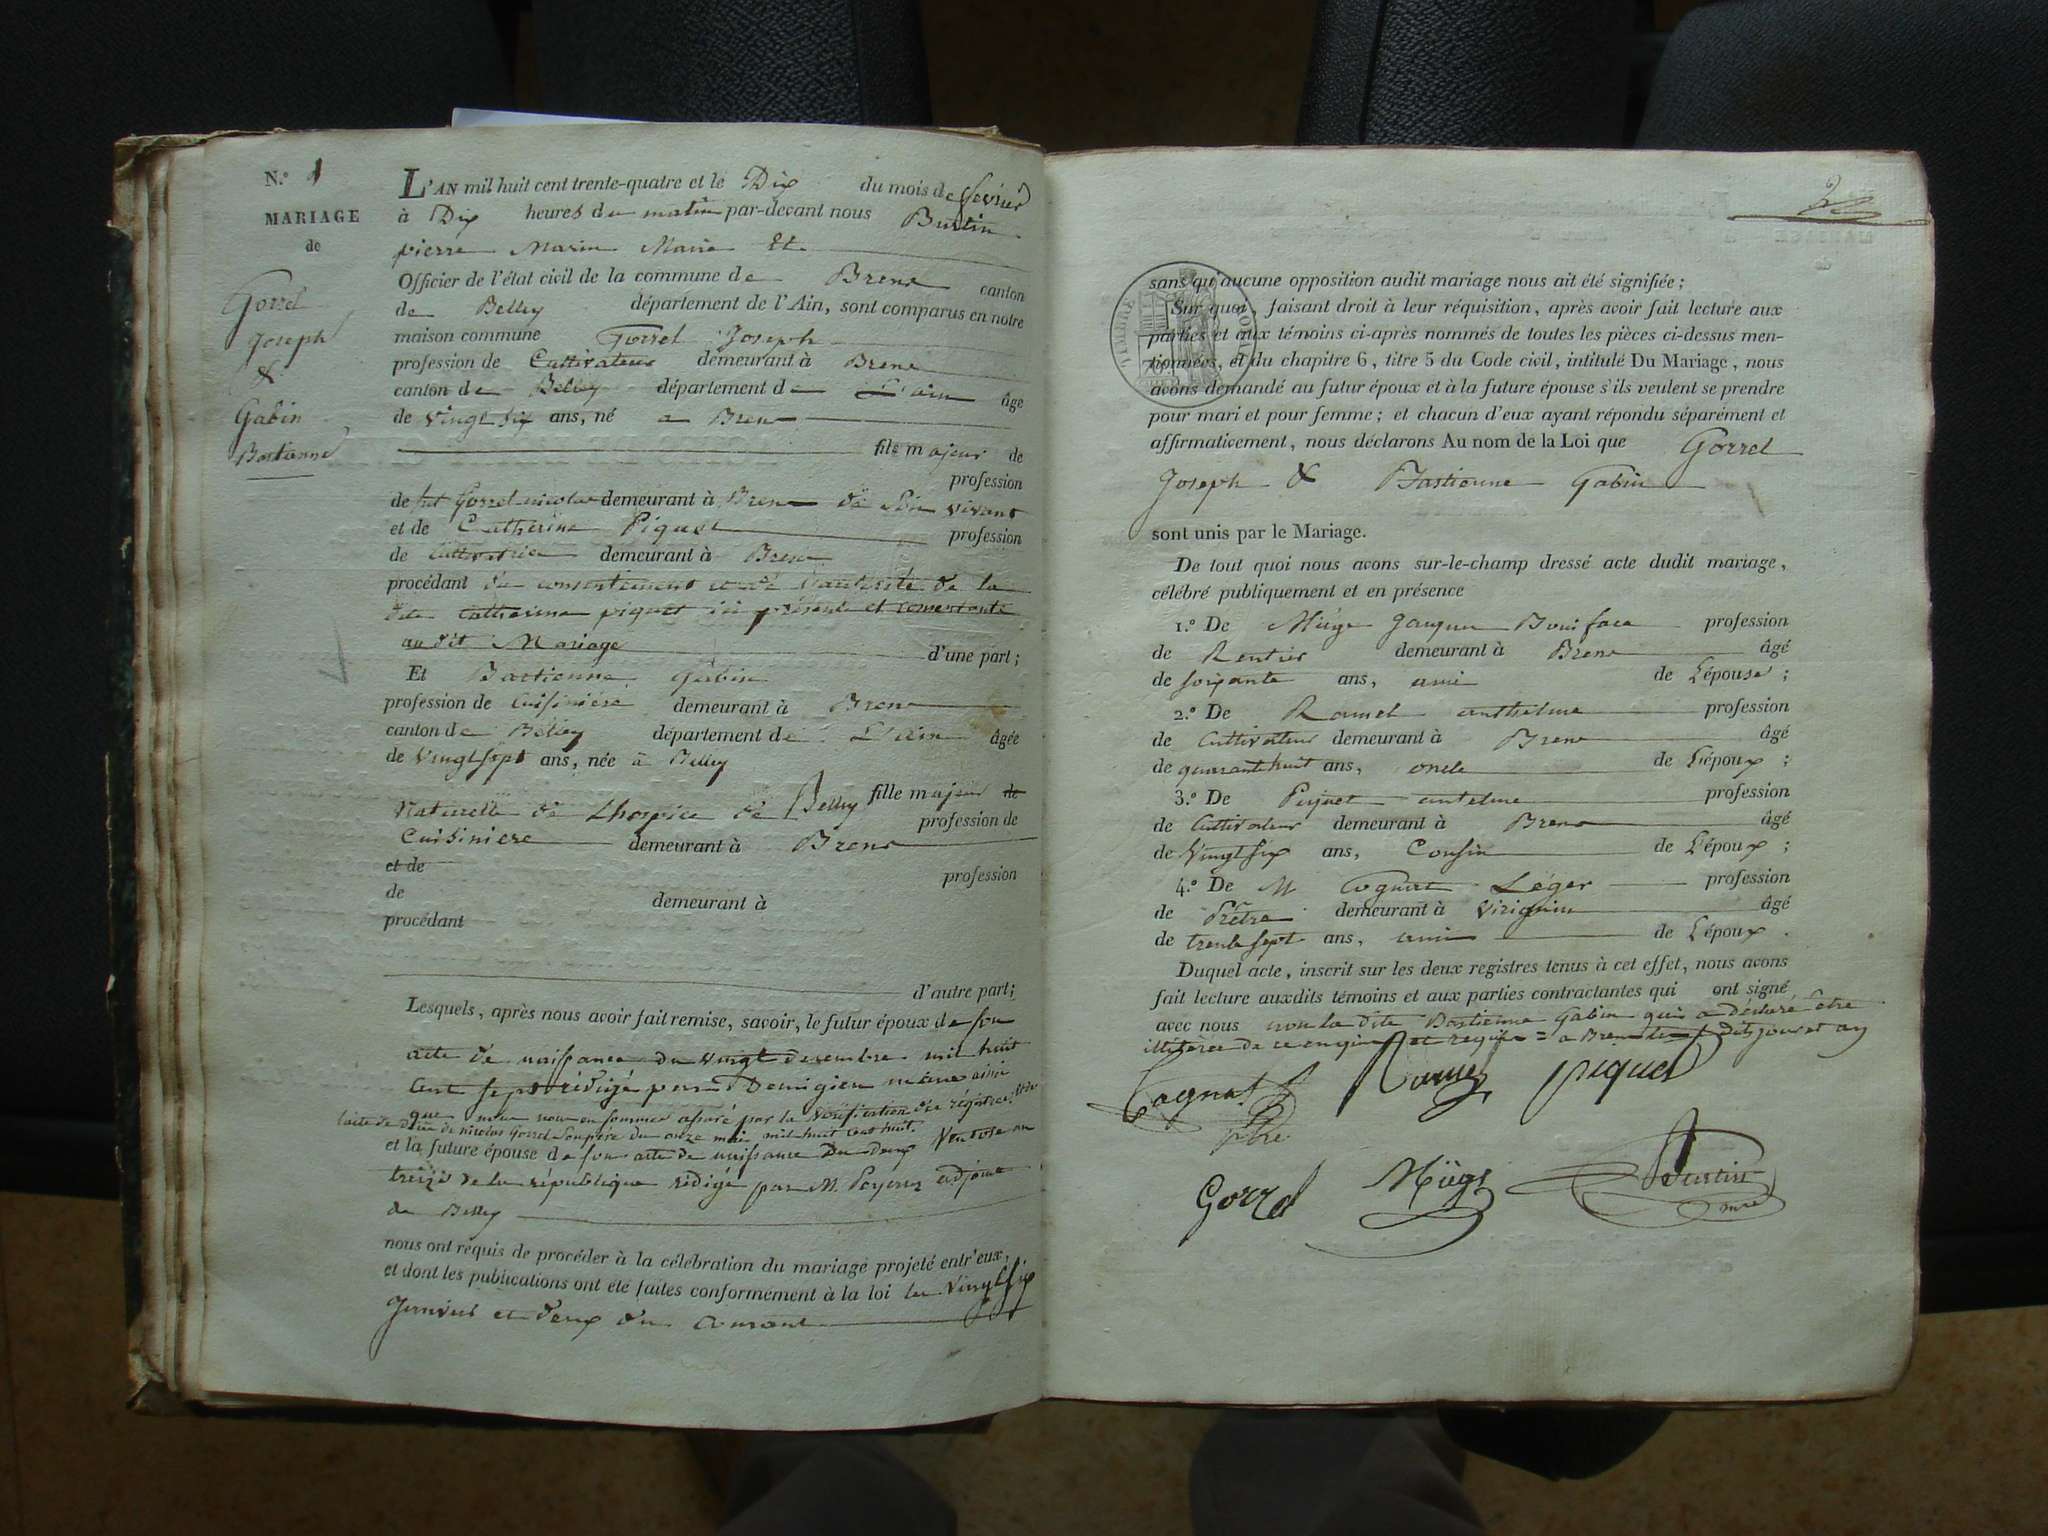 N.º 1
MARIAGE
de
Gorrel
Joseph
&
Gabin
Bastienne
L'AN mil huit cent trente-quatre et le Dix du mois de fevrier
à Dix heures du matin par-devant nous Burtin
pierre Marin Marie Et
Officier de l'état civil de la commune de Brens canton
de Belley département de l'Ain, sont comparus en notre
maison commune Gorrel Joseph
profession de Cultivateur demeurant à Brens
canton de Belley département de L'ain âgé
de vingt six ans, né a Brens
fils majeur de
profession
de fut Gorrel nicolas demeurant à Brens de Son vivant
et de Catherine Piquet profession
de Cultivatrice demeurant à Brens
procédant du consentement et de l'autorité de la
dite Catherine piquet ici présente et consentante
au dit Mariage d'une part;
Et Bastienne Gabin
profession de Cuisinière demeurant à Brens
canton de Belley département de L'ain âgée
de vingt sept ans, née à Belley
fille majeur de
Naturelle de Lhospice de Belley profession de
Cuisiniere demeurant à Brens
et de profession
de demeurant à
procédant
d'autre part;
Lesquels, après nous avoir fait remise, savoir, le futur époux de son
acte de naissance du vingt desembre mil huit
cent sept rédigé par Demigieu maire ainsi
que nous nous en sommes assuré par la vérification des régistres
de Nicolas Gorrel Son père du onze mai mil huit cent huit.
et la future épouse de son acte de naissance Du deux Ventose an
treize de la république rédigé par M. adjoint
de Belley
nous ont requis de procéder à la célébration du mariage projeté entr'eux,
et dont les publications ont été faites conformément à la loi les vingt six
Janvier et deux du courant
2
TIMBRE ROYAL
sans qu'aucune opposition audit mariage nous ait été signifiée;
Sur quoi, faisant droit à leur réquisition, après avoir fait lecture aux
parties et aux témoins ci-après nommés de toutes les pièces ci-dessus men-
tionnées, et du chapitre 6, titre 5 du Code civil, intitulé Du Mariage, nous
avons demandé au futur époux et à la future épouse s'ils veulent se prendre
pour mari et pour femme; et chacun d'eux ayant répondu séparément et
affirmativement, nous déclarons Au nom de la Loi que Gorrel
Joseph & Bastienne Gabin
sont unis par le Mariage.
De tout quoi nous avons sur-le-champ dressé acte dudit mariage,
célébré publiquement et en présence
1.º De Miège Jacques Boniface profession
de Rentier demeurant à Brens âgé
de soixante ans, ami de L'épouse;
2.º De Ramel anthelme profession
de Cultivateur demeurant à Brens âgé
de quarante huit ans, oncle de L'époux;
3.º De Piquet antelme profession
de Cultivateur demeurant à Brens âgé
de vingt six ans, Cousin de L'époux;
4.º De M Cognat Léger profession
de Prêtre demeurant à Virignin âgé
de trente sept ans, ami de L'époux.
Duquel acte, inscrit sur les deux registres tenus à cet effet, nous avons
fait lecture auxdits témoins et aux parties contractantes qui ont signé
avec nous non la dite Bastienne Gabin qui a déclaré être
illiterée de ce enquise et requise = a Brens les dits jour et an
Cognat Ramel piquet
ptre
Gorrel Miège Burtin
mre